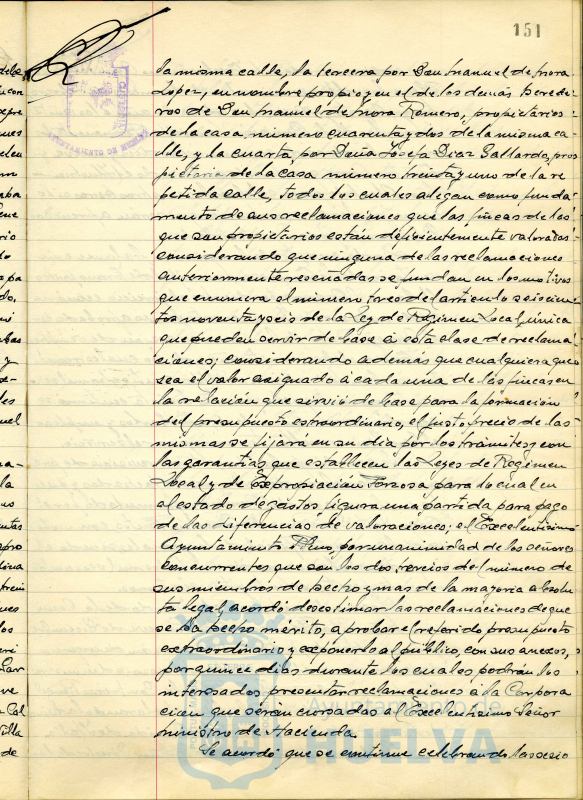 151
la misma calle, la tercera por Don Manuel de Mora
López, en nombre propio y en el de los demás herede-
ros de Don Manuel de Mora Romero, propietarios
de la casa número cuarenta y dos de la misma ca-
lle, y la cuarta, por Doña Josefa Diaz Gallardo, pro
pietaria de la casa número treinta y uno de la re
petida calle, todos los cuales alegan como funda-
mento de sus reclamaciones que las fincas de las
que son propietarios están deficientemente valoradas
considerando que ninguna de las reclamaciones
anteriormente reseñadas se fundan en los motivos
que enumera el número tres del artículo seiscien
tos noventa y seis de la Ley de Régimen Local, única
que puedan servir de base á esta clase de reclama
ciones; considerando además que cualquiera que
sea el valor asignado á cada una de las fincas en
la relación que sirvió de base para la formación
del presupuesto extraordinario, el justo precio de las
mismas se fijará en su dia por los trámites con
las garantías que establecen las Leyes de Régimen
Local y de Expropiación Forzosa para lo cual en
el estado de gastos figura una partida para pago
de las diferencias de valoraciones; el Excelentísimo
Ayuntamiento Pleno, por unanimidad de los señores
concurrentes que son los dos tercios del número de
sus miembros de hecho y mas de la mayoria absolu
ta legal, acordó desestimar las reclamaciones de que
se ha hecho mérito, aprobar el referido presupuesto
extraordinario y exponerlo al público, con sus anexos,
por quince dias durante los cuales, podrán los
interesados presentar reclamaciones á la Corpora
ción que serán cursadas al Excelentísimo Señor
ministro de Hacienda.
Se acordó que se continue celebrando las sesio
Ayuntamiento de
HUELVA